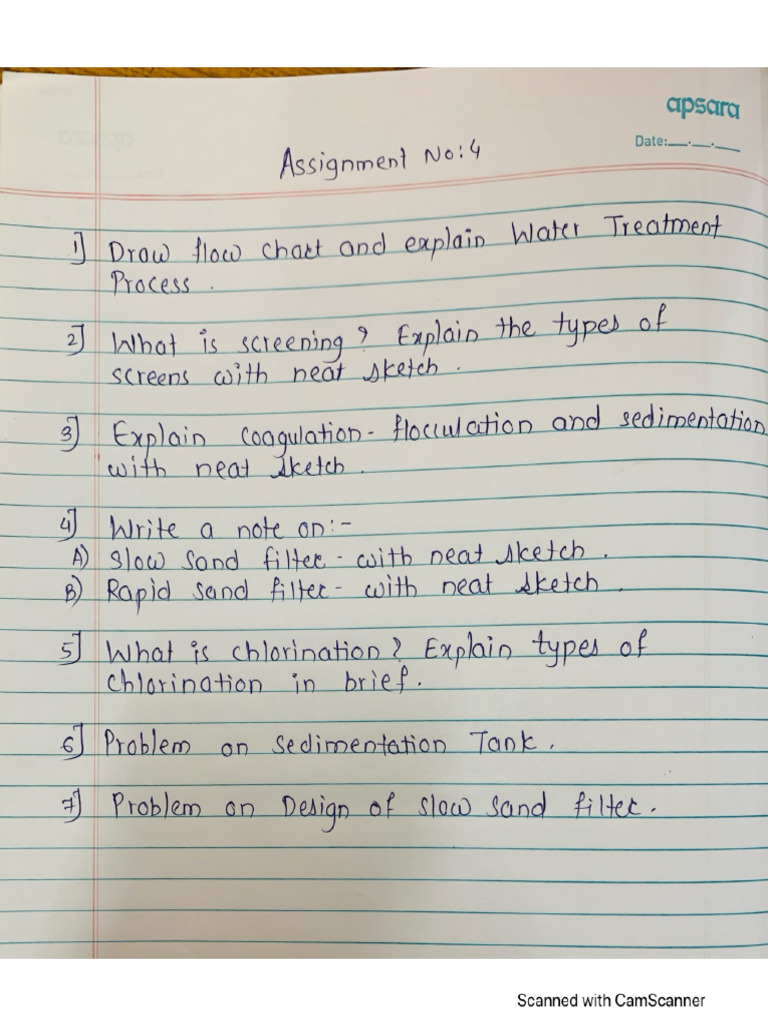 apsara
Date:__.__.__
Assignment No:4
1] Draw flow chart and explain Water Treatment
Process.
2] What is screening? Explain the types of
screens with neat sketch.
3] Explain coagulation-flocculation and sedimentation
with neat sketch.
4] Write a note on:-
A) Slow sand filter - with neat sketch.
B) Rapid sand filter - with neat sketch.
5] What is chlorination? Explain types of
chlorination in brief.
6] Problem on sedimentation Tank.
7] Problem on Design of slow sand filter.
Scanned with CamScanner